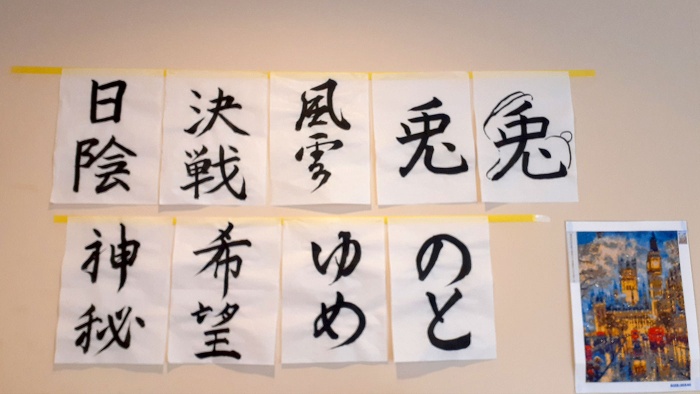 日陰
決戦
風雲
兎
兎
神秘
希望
ゆめ
のと